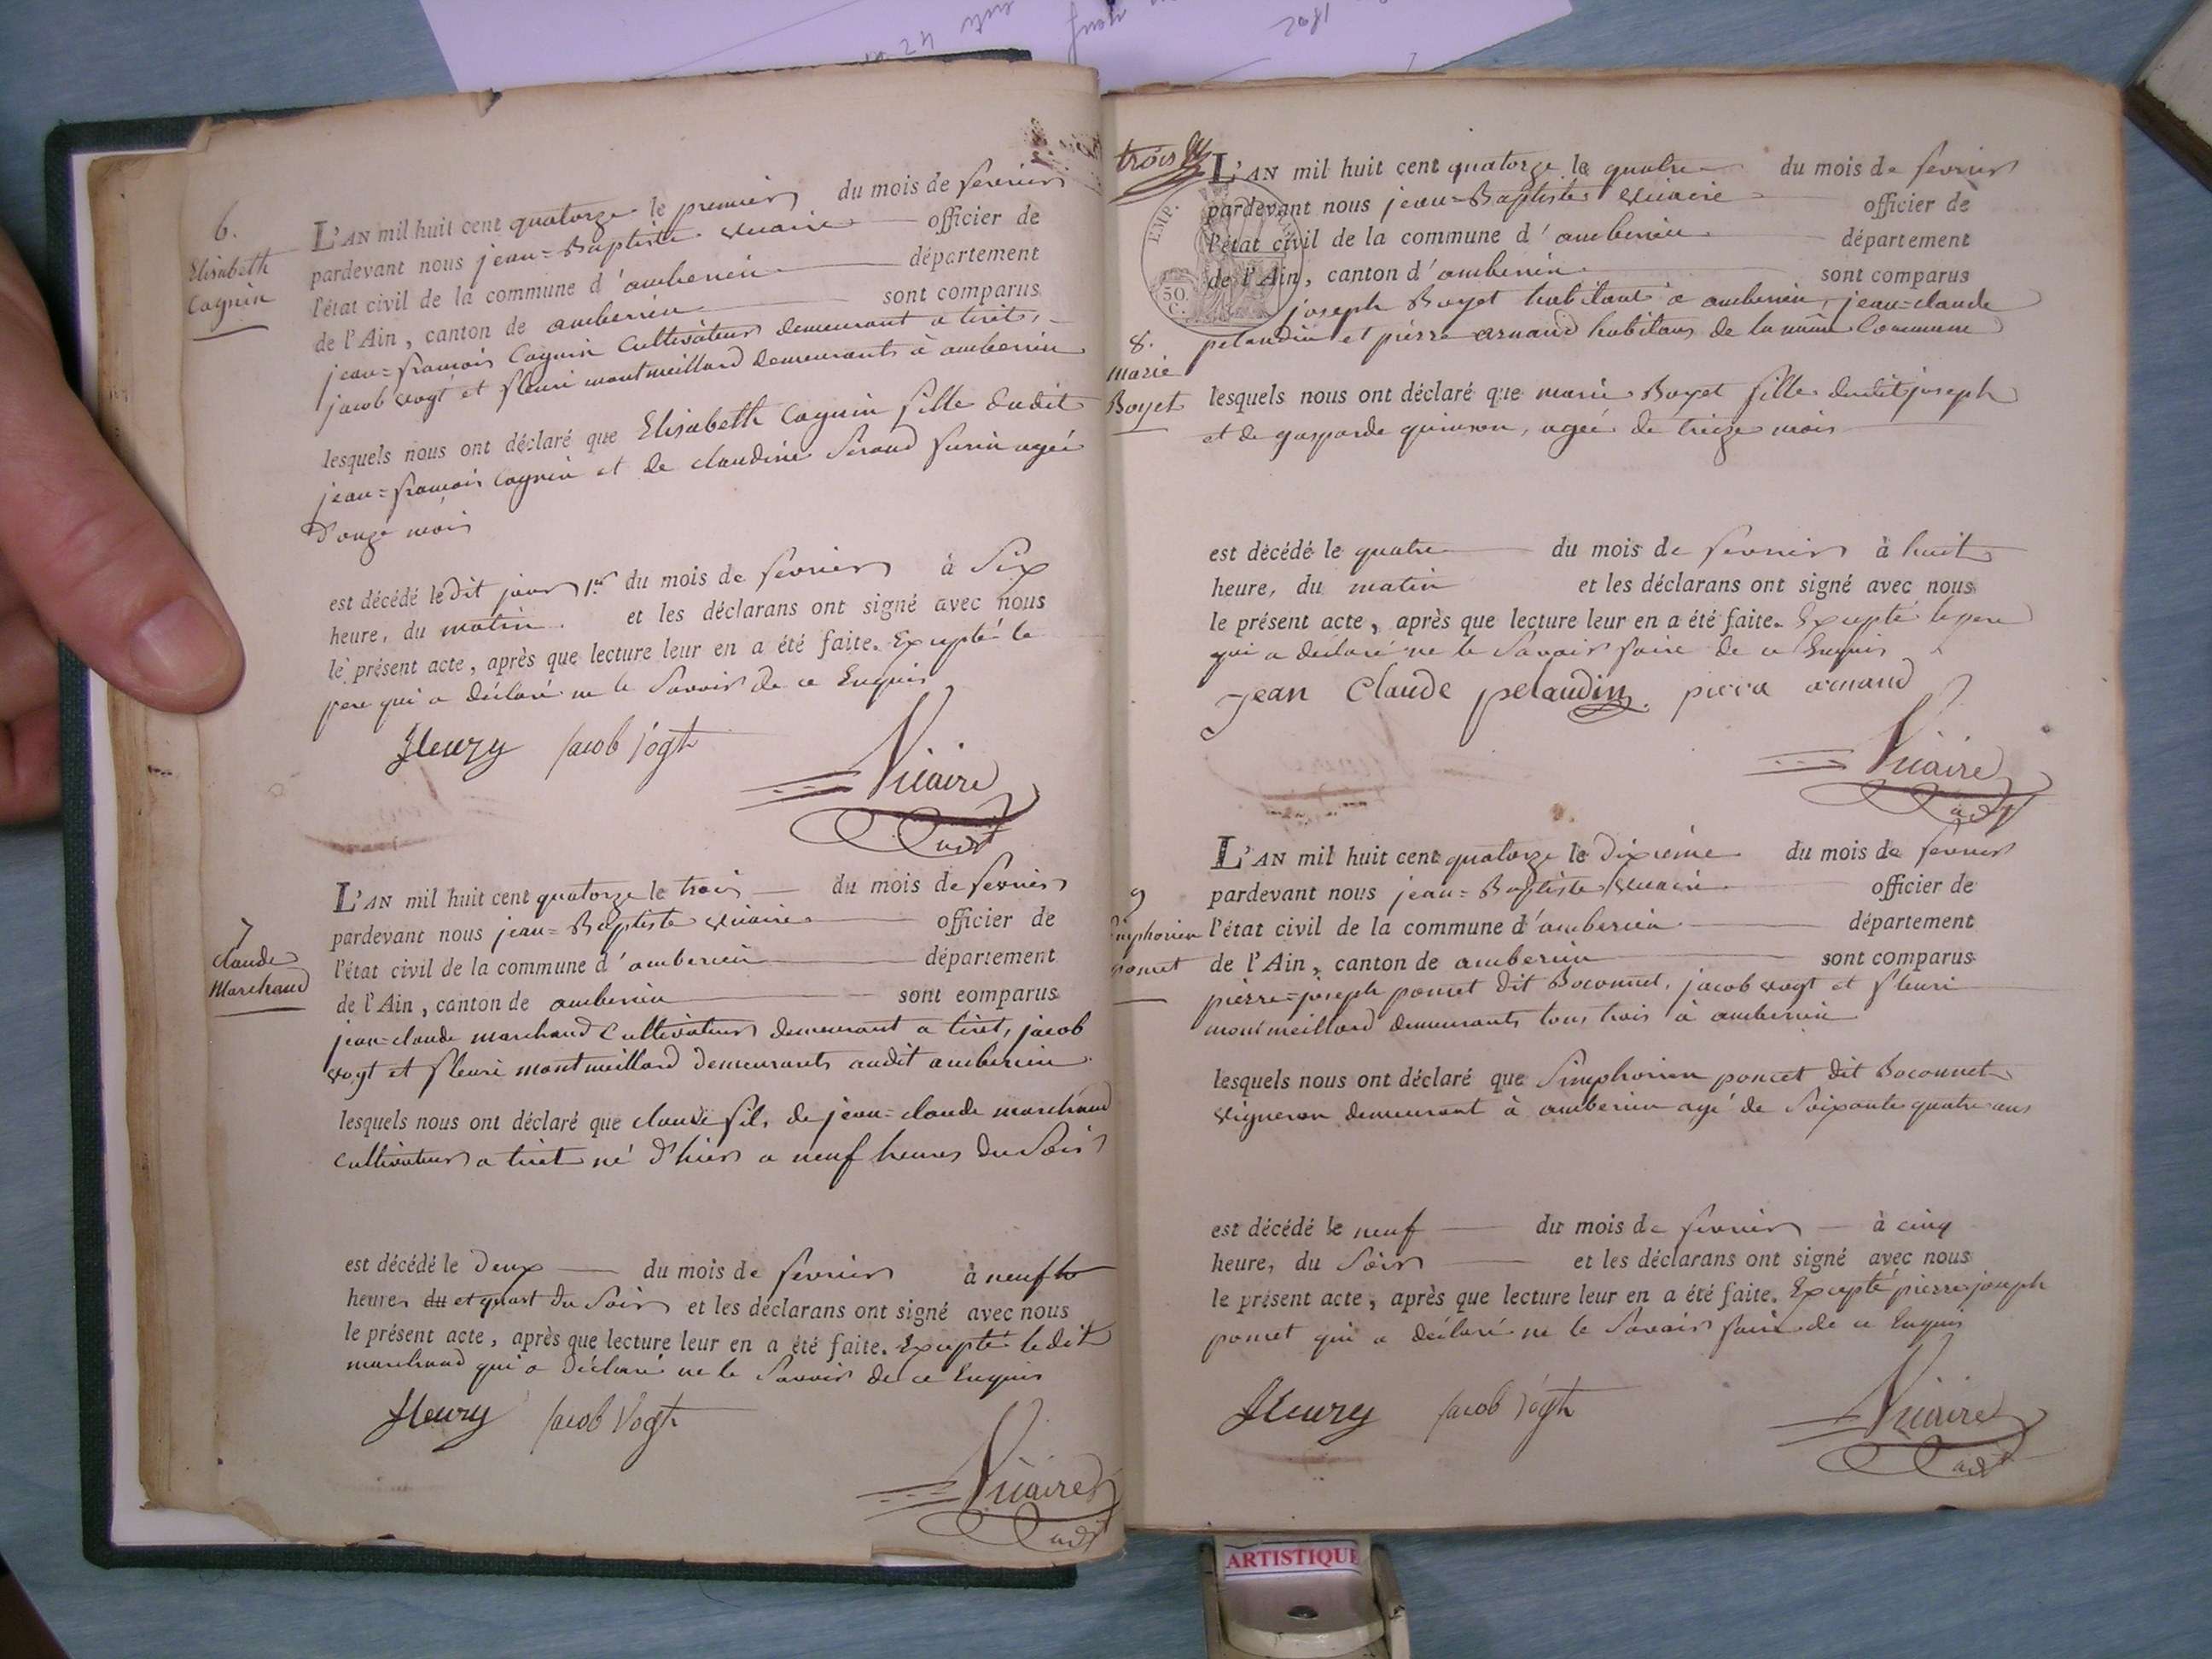 6.
Elisabeth
Cagnin
L'AN mil huit cent quatorze le premier du mois de fevrier
pardevant nous jean=Baptiste vicaire officier de
l'état civil de la commune d'amberieu département
de l'Ain, canton de amberieu sont comparus
jean=francois Cagnin Cultivateur demeurant a tiret,
jacob vogt et fleuri montmeillard demeurants à amberieu
lesquels nous ont déclaré que Elisabeth Cagnin fille dudit
jean=francois Cagnin et de claudine agée
d'onze mois
est décédé le dit jour 1er du mois de fevrier à Six
heure, du matin. et les déclarans ont signé avec nous
le présent acte, après que lecture leur en a été faite. Excepté le
pere qui a déclaré ne le Savoir de ce Enquis
fleury jacob Vogt
Vicaire
adjt
7
claude
Marchand
L'AN mil huit cent quatorze le trois du mois de fevrier
pardevant nous jean=Baptiste vicaire officier de
l'état civil de la commune d'amberieu département
de l'Ain, canton de amberieu sont comparus
jean=claude marchand Cultivateur demeurant a tiret, jacob
vogt et fleuri montmeillard demeurants audit amberieu
lesquels nous ont déclaré que claude fils de jean=claude marchand
Cultivateur a tiret né d'hier a neuf heures du Soir
est décédé le deux du mois de fevrier à neuf
heures du et quart du Soir et les déclarans ont signé avec nous
le présent acte, après que lecture leur en a été faite. Excepté ledit
marchand qui a déclaré ne le Savoir de ce Enquis
fleury jacob Vogt
Vicaire
adjt
trois
EMP.
50.
C.
L'AN mil huit cent quatorze le quatre du mois de fevrier
pardevant nous jean=Baptiste vicaire officier de
l'état civil de la commune d'amberieu département
de l'Ain, canton d'amberieu sont comparus
joseph Boyet habitant a amberieu, jean=claude
pelaudin et pierre arnaud habitans de la même Commune
8.
Marie
Boyet
lesquels nous ont déclaré que marie Boyet fille dudit joseph
et de gasparde quinson, agée de treize mois
est décédé le quatre du mois de fevrier à huit
heure, du matin et les déclarans ont signé avec nous
le présent acte, après que lecture leur en a été faite. Excepté le pere
qui a déclaré ne le Savoir faire de ce Enquis
jean Claude pelaudin. pierre arnaud
Vicaire
adjt
9
Simphorien
poncet
L'AN mil huit cent quatorze le dixieme du mois de fevrier
pardevant nous jean=Baptiste vicaire officier de
l'état civil de la commune d'amberieu département
de l'Ain, canton de amberieu sont comparus
pierre=joseph poncet dit Boconnet, jacob vogt et fleuri
montmeillard demeurants tous trois à amberieu
lesquels nous ont déclaré que Simphorien poncet dit Boconnet
vigneron demeurant à amberieu agé de Soixante quatre ans
est décédé le neuf du mois de fevrier à cinq
heure, du Soir et les déclarans ont signé avec nous
le présent acte, après que lecture leur en a été faite. Excepté pierre joseph
poncet qui a déclaré ne le Savoir faire de ce Enquis
fleury jacob Vogt
Vicaire
adjt
ARTISTIQUE